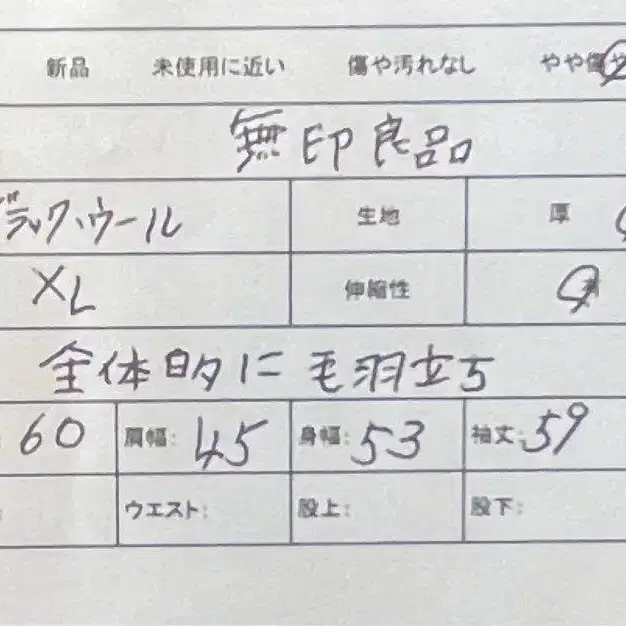 新品 未使用に近い 傷や汚れなし やや傷や
無印良品
ブラック、ウール 生地 厚
XL 伸縮性
全体的に毛羽立ち
60 肩幅: 45 身幅: 53 袖丈: 59
ウエスト: 股上: 股下: